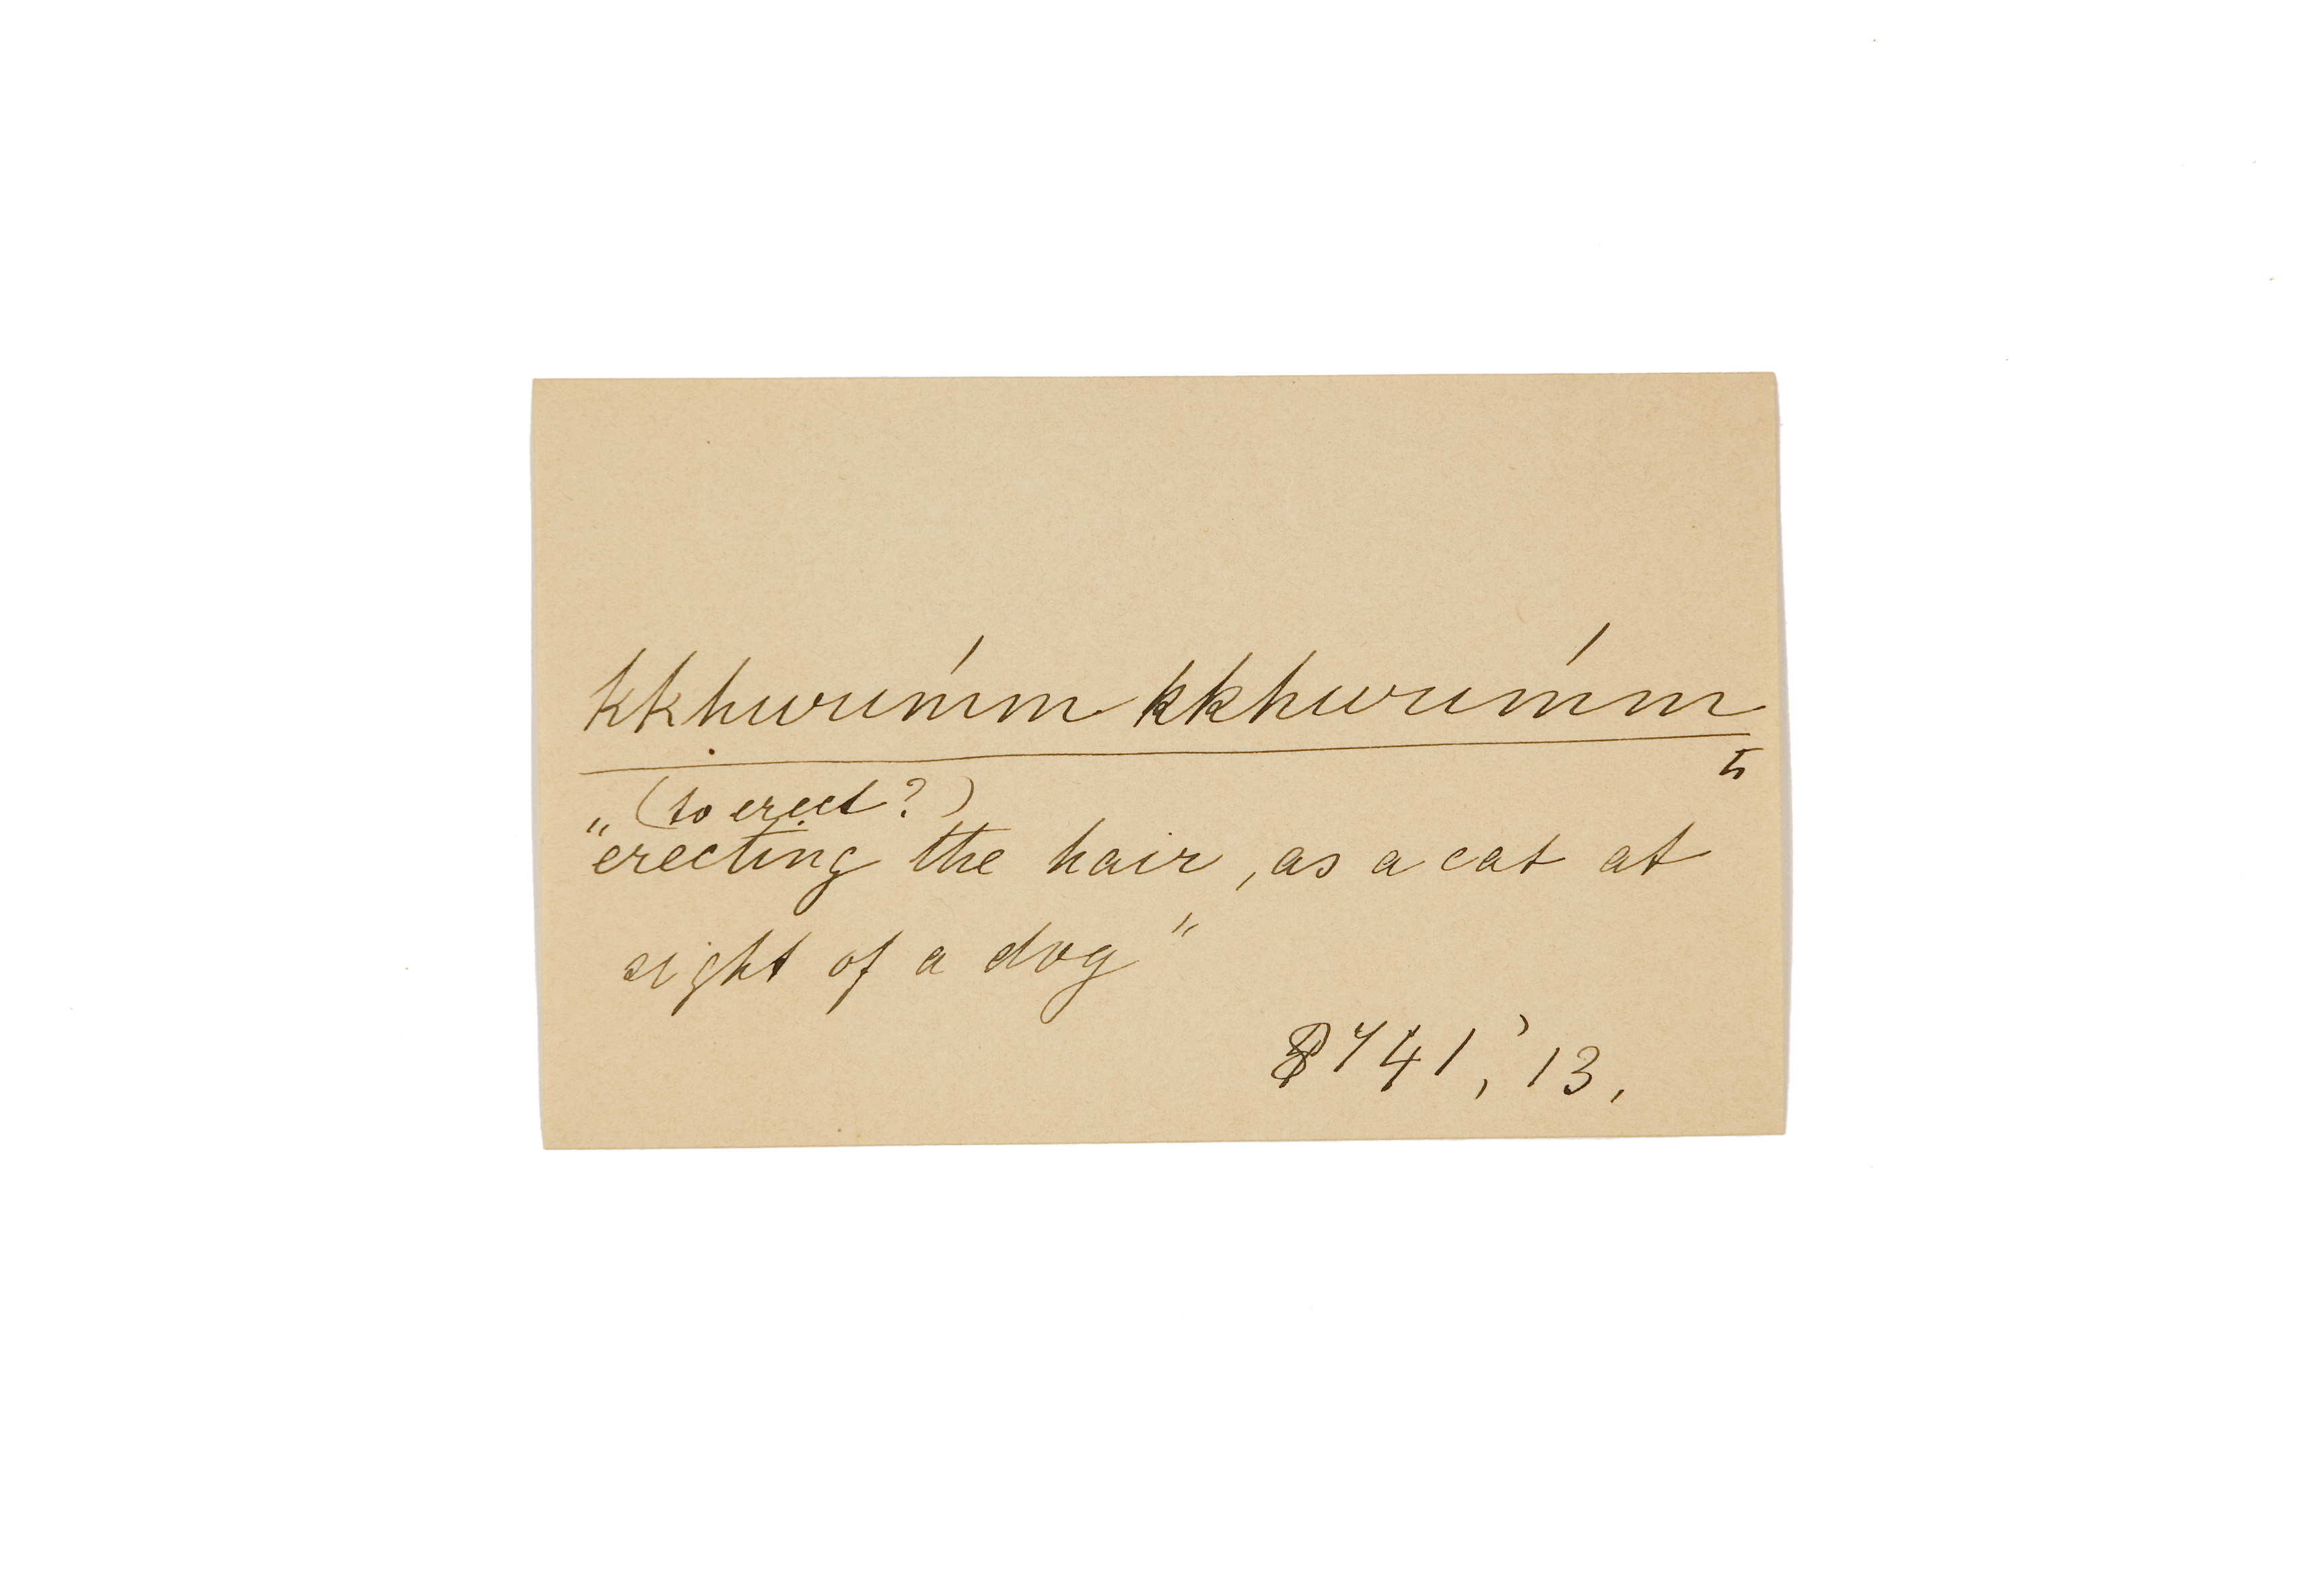 kkhwum'm kkhwum'm
to
(to erect?)
"erecting the hair, as a cat at
sight of a dog"
741, 13.